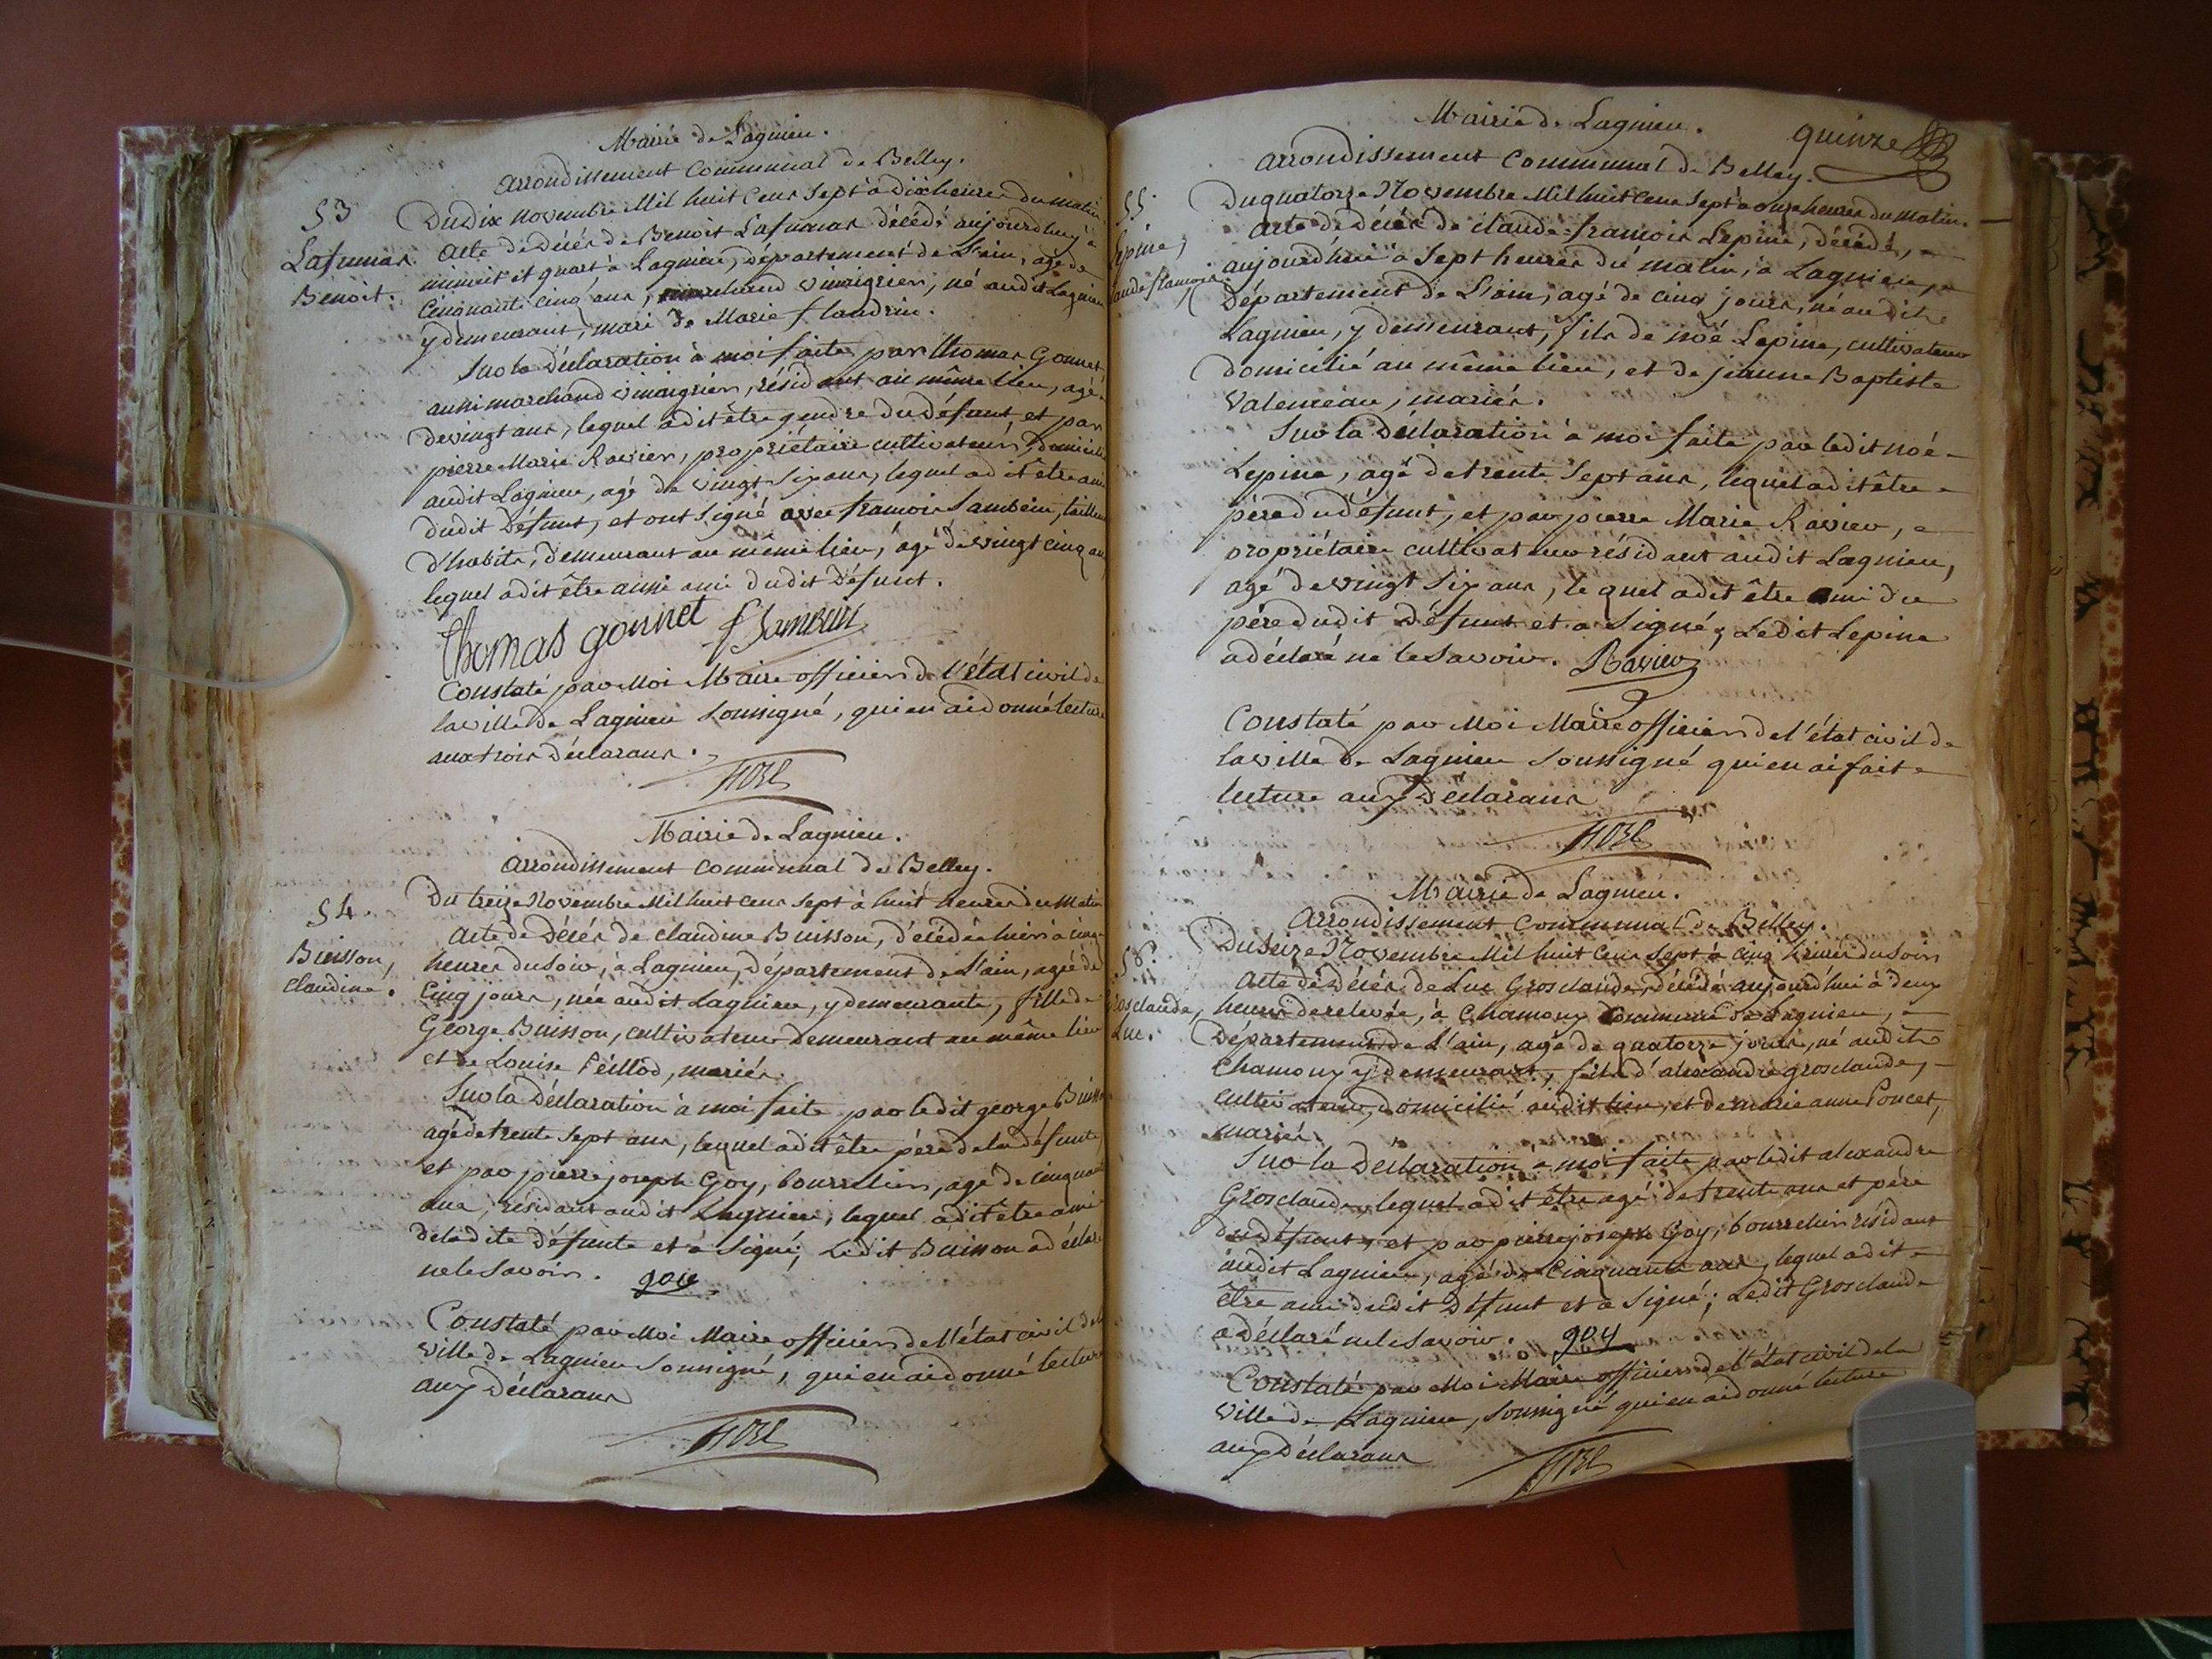 Mairie de Lagnieu.
arrondissement Communal de Belley.
53
Lafumas
Benoit.
Du dix Novembre Mil huit Cens Sept à dix heures du matin
Acte de Décès de Benoit Lafumas décédé aujourdhuy à
minuit et quart à Lagnieu, département de L'ain, agé de
Cinquante cinq ans, marchand vinaigrier, né audit Lagnieu
y demeurant, mari de Marie flandrin.
Sur la Déclaration à moi faite par thomas Gonnet
aussi marchand vinaigrier, résidant au même lieu, agé
de vingt ans, lequel a dit être gendre du Défunt, et par
pierre Marie Ravier, propriétaire cultivateur, domicilié
audit Lagnieu, agé de vingt six ans, lequel a dit être ami
dudit Défunt, et ont Signé avec francois Sambein, tailleur
d'habits, demeurant au même lieu, agé de vingt cinq ans
lequel a dit être aussi ami dudit Défunt.
thomas gonnet f Sambein
Constaté par Moi Maire officier de l'état civil de
la ville de Lagnieu Soussigné, qui en ai donné lecture
aux trois Déclarans.
Mairie de Lagnieu.
Arrondissement communal de Belley.
54.
Buisson,
claudine.
Du treize Novembre Mil huit Cens Sept à huit heures du Matin
Acte de Décès de claudine Buisson, décédée hier à cinq
heures du Soir, à Lagnieu, Département de L'ain, agée de
Cinq jours, née audit Lagnieu, y demeurante, fille de
George Buisson, cultivateur demeurant au même lieu
et de Louise Peillod, mariés.
Sur la Déclaration à moi faite par ledit george Buisson
agé de trente Sept ans, lequel a dit être père de la défunte,
et par pierre joseph Goy, bourrelier, agé de cinquante
ans, résidant audit Lagnieu, lequel a dit être ami
de ladite Défunte et a Signé; Ledit Buisson a déclaré
ne le Savoir. goy
Constaté par Moi Maire officier de l'état civil de la
ville de Lagnieu Soussigné, qui en ai donné lecture
aux Déclarans
Mairie de Lagnieu.
quinze
arrondissement Communal de Belley.
55.
Lepine,
claude francois
Du quatorze Novembre Mil huit Cens Sept à onze heures du Matin.
Acte de Décès de claude francois Lepine, décédé,
aujourdhui à Sept heures du matin, à Lagnieu,
Département de L'ain, agé de cinq jours, né audit
Lagnieu, y demeurant, fils de noé Lepine, cultivateur
Domicilié au même lieu, et de jeanne Baptiste
Valenceau, mariés.
Sur la Déclaration à moi faite par ledit noé
Lepine, agé de trente Sept ans, lequel a dit être
père du défunt, et par pierre Marie Ravier,
propriétaire cultivateur résidant audit Lagnieu,
agé de vingt Six ans, lequel a dit être ami du
père dudit Défunt et a Signé; Ledit Lepine
a déclaré ne le Savoir. Ravier
Constaté par Moi Maire officier de l'état civil de
la ville de Lagnieu Soussigné qui en ai fait
lecture aux Déclarans
Mairie de Lagnieu.
Arrondissement Communal de Belley.
56.
Grosclaude,
Luc.
Du Seize Novembre Mil huit Cens Sept à cinq heures du Soir
Acte de Décès de Luc Grosclaude, décédé aujourd'hui à deux
heures de relevée, à Chamoux Commune de Lagnieu,
Département de L'ain, agé de quatorze jours, né audit
Chamoux y demeurant, fils d'alexandre grosclaude,
cultivateur, domicilié audit lieu, et de marie anne Poncet,
mariés.
Sur la Déclaration à moi faite par ledit alexandre
Grosclaude, lequel a dit être agé de trente ans et père
du défunt, et par pierre joseph Goy, bourrelier résidant
audit Lagnieu, agé de Cinquante ans, lequel a dit
être ami dudit Défunt et a Signé; Ledit Grosclaude
a déclaré ne le Savoir. goy
Constaté par Moi Maire officier de l'état civil de la
ville de Lagnieu, Soussigné qui en ai donné lecture
aux Déclarans